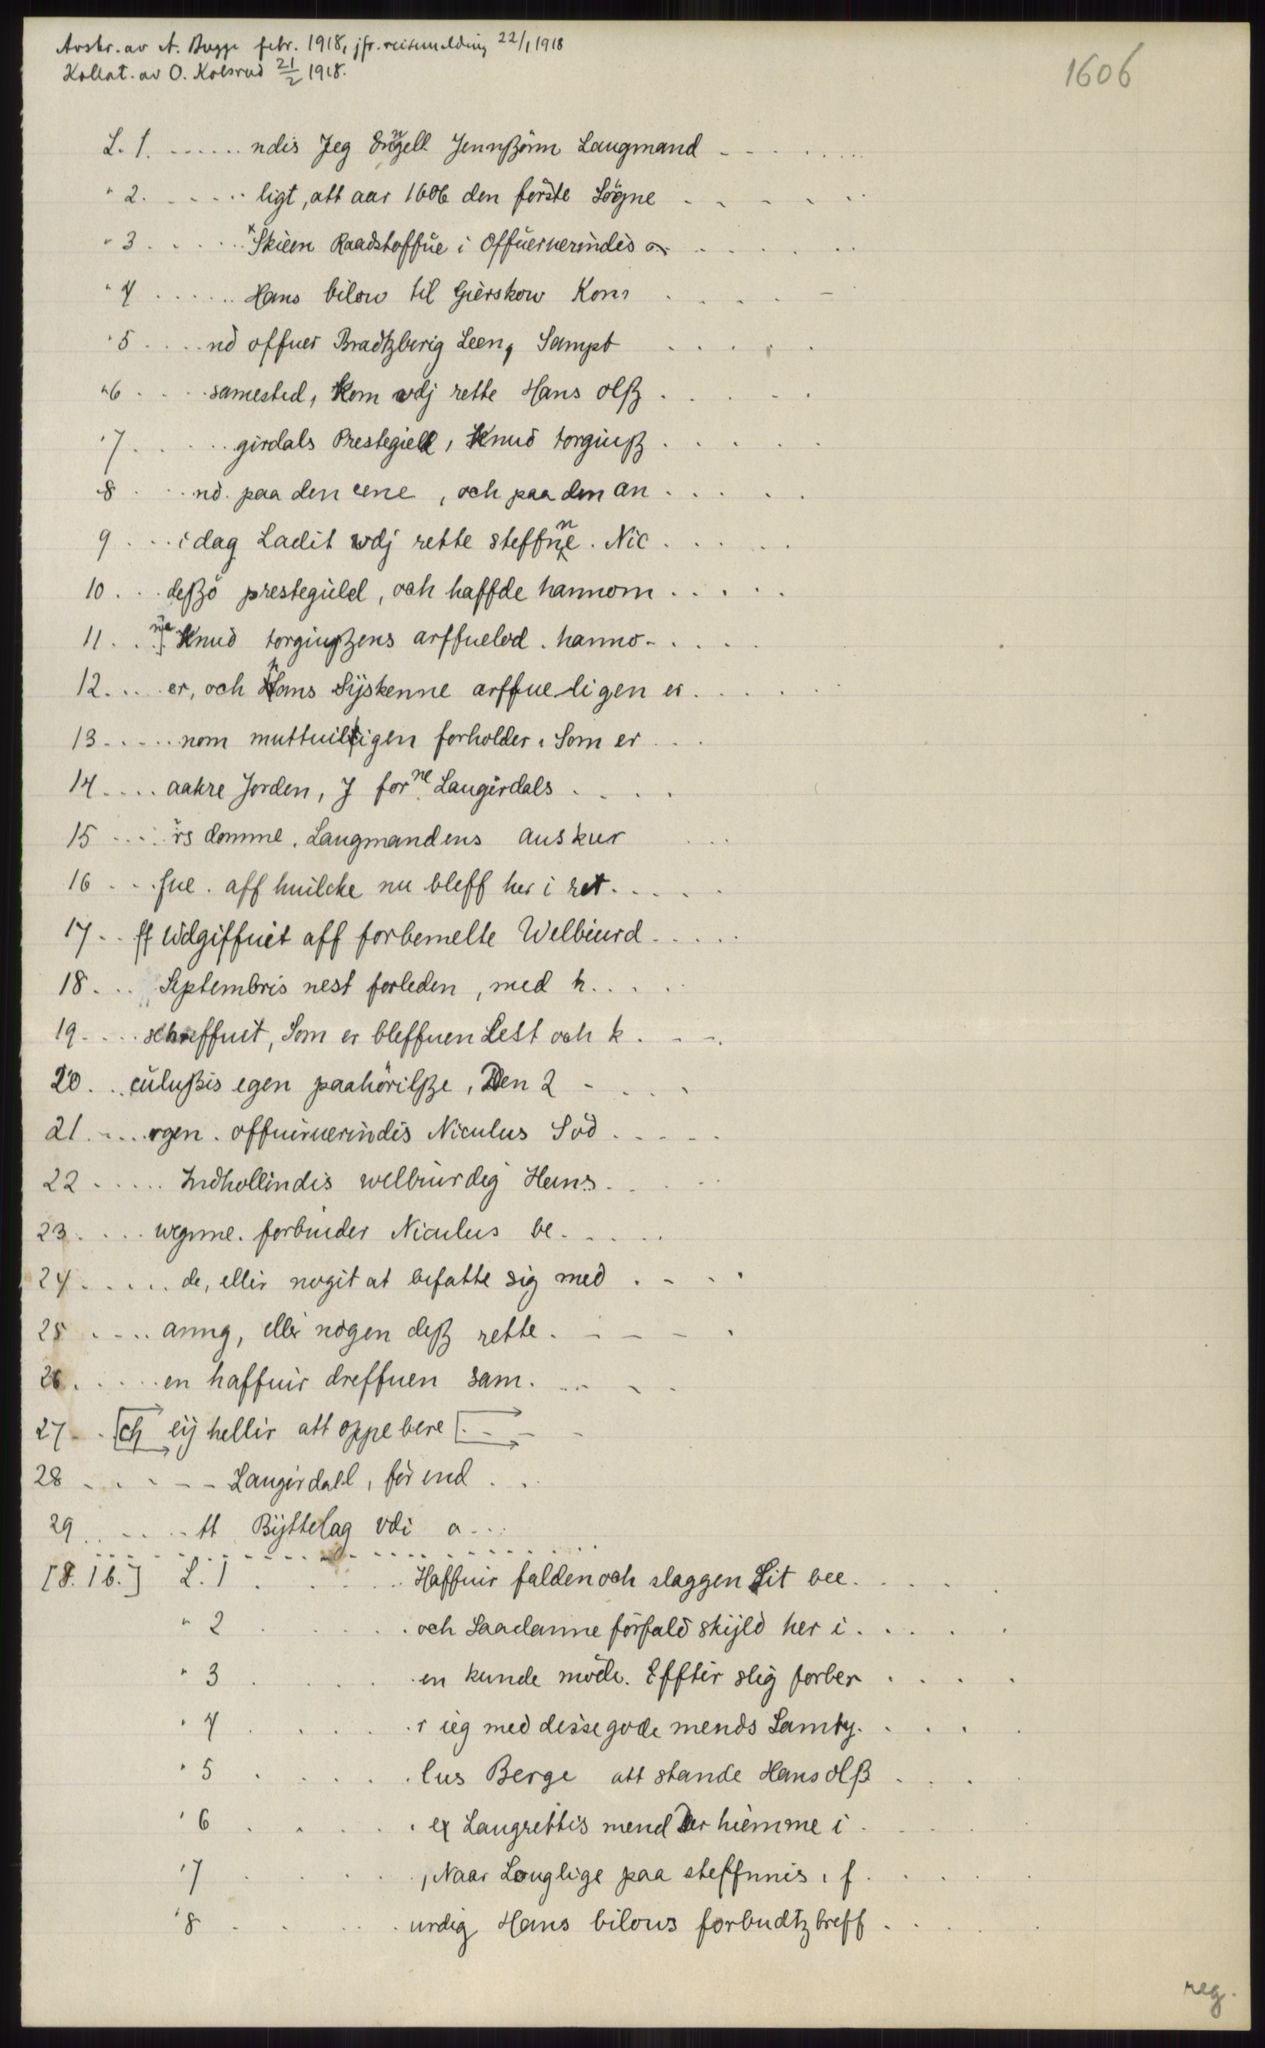 Avskr. av A. Bugge febr. 1918, jfr. reisemelding 22/1 1918
Kollat. av O. Kolsrud 21/2 1918.
1606
L. 1. ...... ndis Jeg Engell Jennßönn Laugmand - - . . . . .
" 2. . . . . . ligt, att aar 1606 den förste Sögne - - - - - -
" 3 . . . . . . Skieen Raadstoffue i Offueruerindis a . . . . .
" 4 . . . . . . Hans bilow til Gierskow Kon . . . . -
" 5 . . . . nd offuer Bradtzberig Leen, Sampt . . . . .
" 6 . . . . samested, Kom vdj rette Hans olß . . . . .
" 7 . . . . . girdals Prestegield, Knud torgiuß . . . . .
" 8 . . . nd paa den eene, och paa den an . . . . .
9 . . . i dag Ladit wdj rette steffnne. Nic . . . . .
10 . . . deßö prestegield, och haffde hannom . . . . .
11 . . ne] Knud torgiußens arffuelod. hanno - . . . .
12 . . . . er, och Hans Sÿskenne arffueligen er . . . . .
13 . . . . . nom muttuiligen forholder. Som er . . .
14 . . . . aakre Jorden, J forne Laugirdals . . . .
15 . . . . rs domme. Laugmandens auskur . . .
16 . . . fue. aff huilcke nu bleff her i ret . . . . .
17 . . ff Udgiffuit aff forbemelte Welbiurd . . . . .
18 . . . Septembris nest forleden, med h . . . .
19 . . . . schreffuit, Som er bleffuen Lest och k . - -.
20 . . culußis egen paahörilße, Den 2 - . . .
21 . . . . rgen. offuiruerindis Niculus Söd . . . . .
22 . . . . . Indhollindis welbiurdig Hans . . . . .
23 . . . . wegnne. forbinder Niculus be . . . . .
24 . . . . . de, ellir nogit at befatte sig med . - . .
25 . . . . anng, eller nogen deß rette . - - - .
26 . . . . . en haffuir dreffuen sam . . . - .
27 . . [ch] eÿ hellir att oppebere [. - - -
28 . . . - - Laugirdall, för end . . .
29 . . . . . tt Bÿttelag vdi a . . .
[S. 1 b.] L. 1 . . . . . Haffuir falden och slaggen Lit bee . . . . .
" 2 . . . . . och Saadanne forfald skÿld her i . . . . .
" 3 . . . . . en kunde möde. Efftir slig forber . . . .
" 4 . . . . . r ieg med desse gode mends Samty . . . . .
" 5 . . . . . lus Berge att stande Hans olß . . . .
" 6 . . . . . ex Laugrettis mend Der hiemme i . . . . .
" 7 . . . . . , Naar Lauglige paa steffnnis, f . . . . .
" 8 . . . . . urdig Hans bilous forbudtz breff . . . . .
reg.